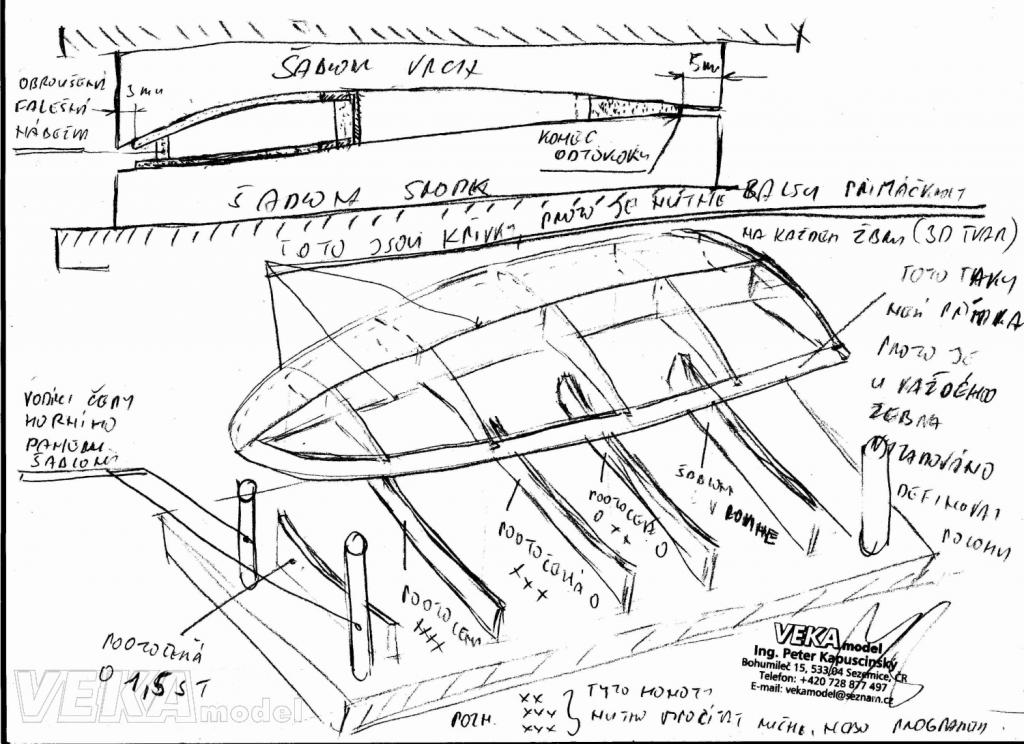 ŠABLONA VRCH
5 mm
OBROUŠENÍ
FALEŠNÍ
NÁBĚŽKA
3 mm
KONEC
ODTOKOVKY
ŠABLONA SPODEK
TOTO JSOU KŘIVKY, PROTO JE NUTNÉ BALSU PŘIMÁČKNOUT
NA KAŽDÉM ŽBRU (3D TVAR)
TOTO TAKY
NENÍ PŘÍMKA
PROTO JE
U KAŽDÉHO
ŽEBRA
DEFINOVAT
POLOHU
VODÍCI ČEPY
HORNÍHO
ŠABLONY
ŠABLONA
V ROVINĚ
POOTOČENÁ
O XX
POOTOČENÁ O
XXX
POOTOČENÁ
POOTOČENÁ
O 1,5 ST
VEKA model
Ing. Peter Kapuscinský
Bohumileč 15, 533/04 Sezemice, ČR
Telefon: +420 728 877 497
E-mail: vekamodel@seznam.cz
POZN. XX XXX XXX } TYTO HODNOTY
NUTNO VYPOČÍTAT RUČNĚ, NEBO PROGRAMEM.
VEKA model